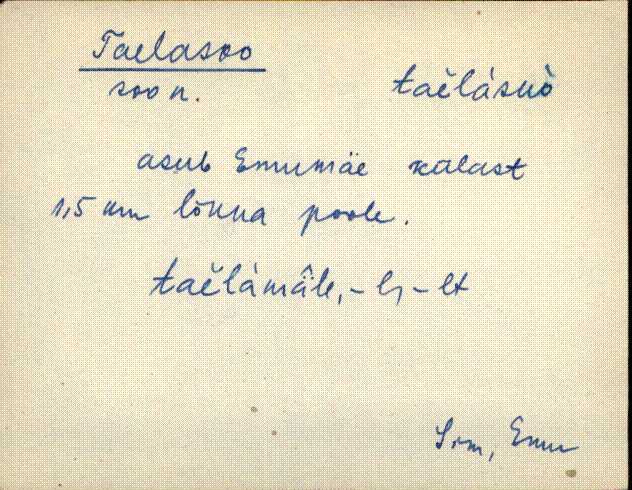 Taelasoo
soo n. taĕlásuò
asub Emumäe külast
1,5 km lõuna poole.
taĕlámäle, -l, -lt
Sim, Emu